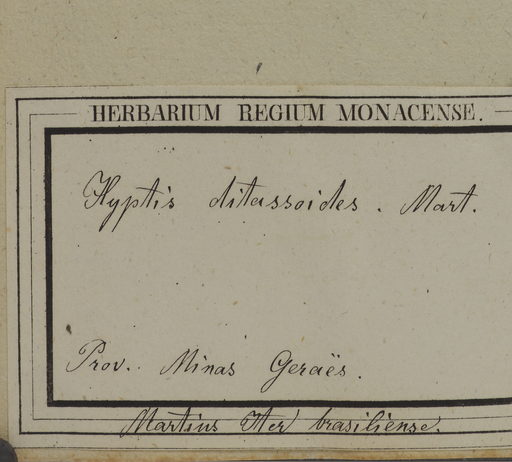 HERBARIUM REGIUM MONACENSE.
Hyptis ditassoides. Mart.
Prov. Minas Geraës.
Martius Iter brasiliense.